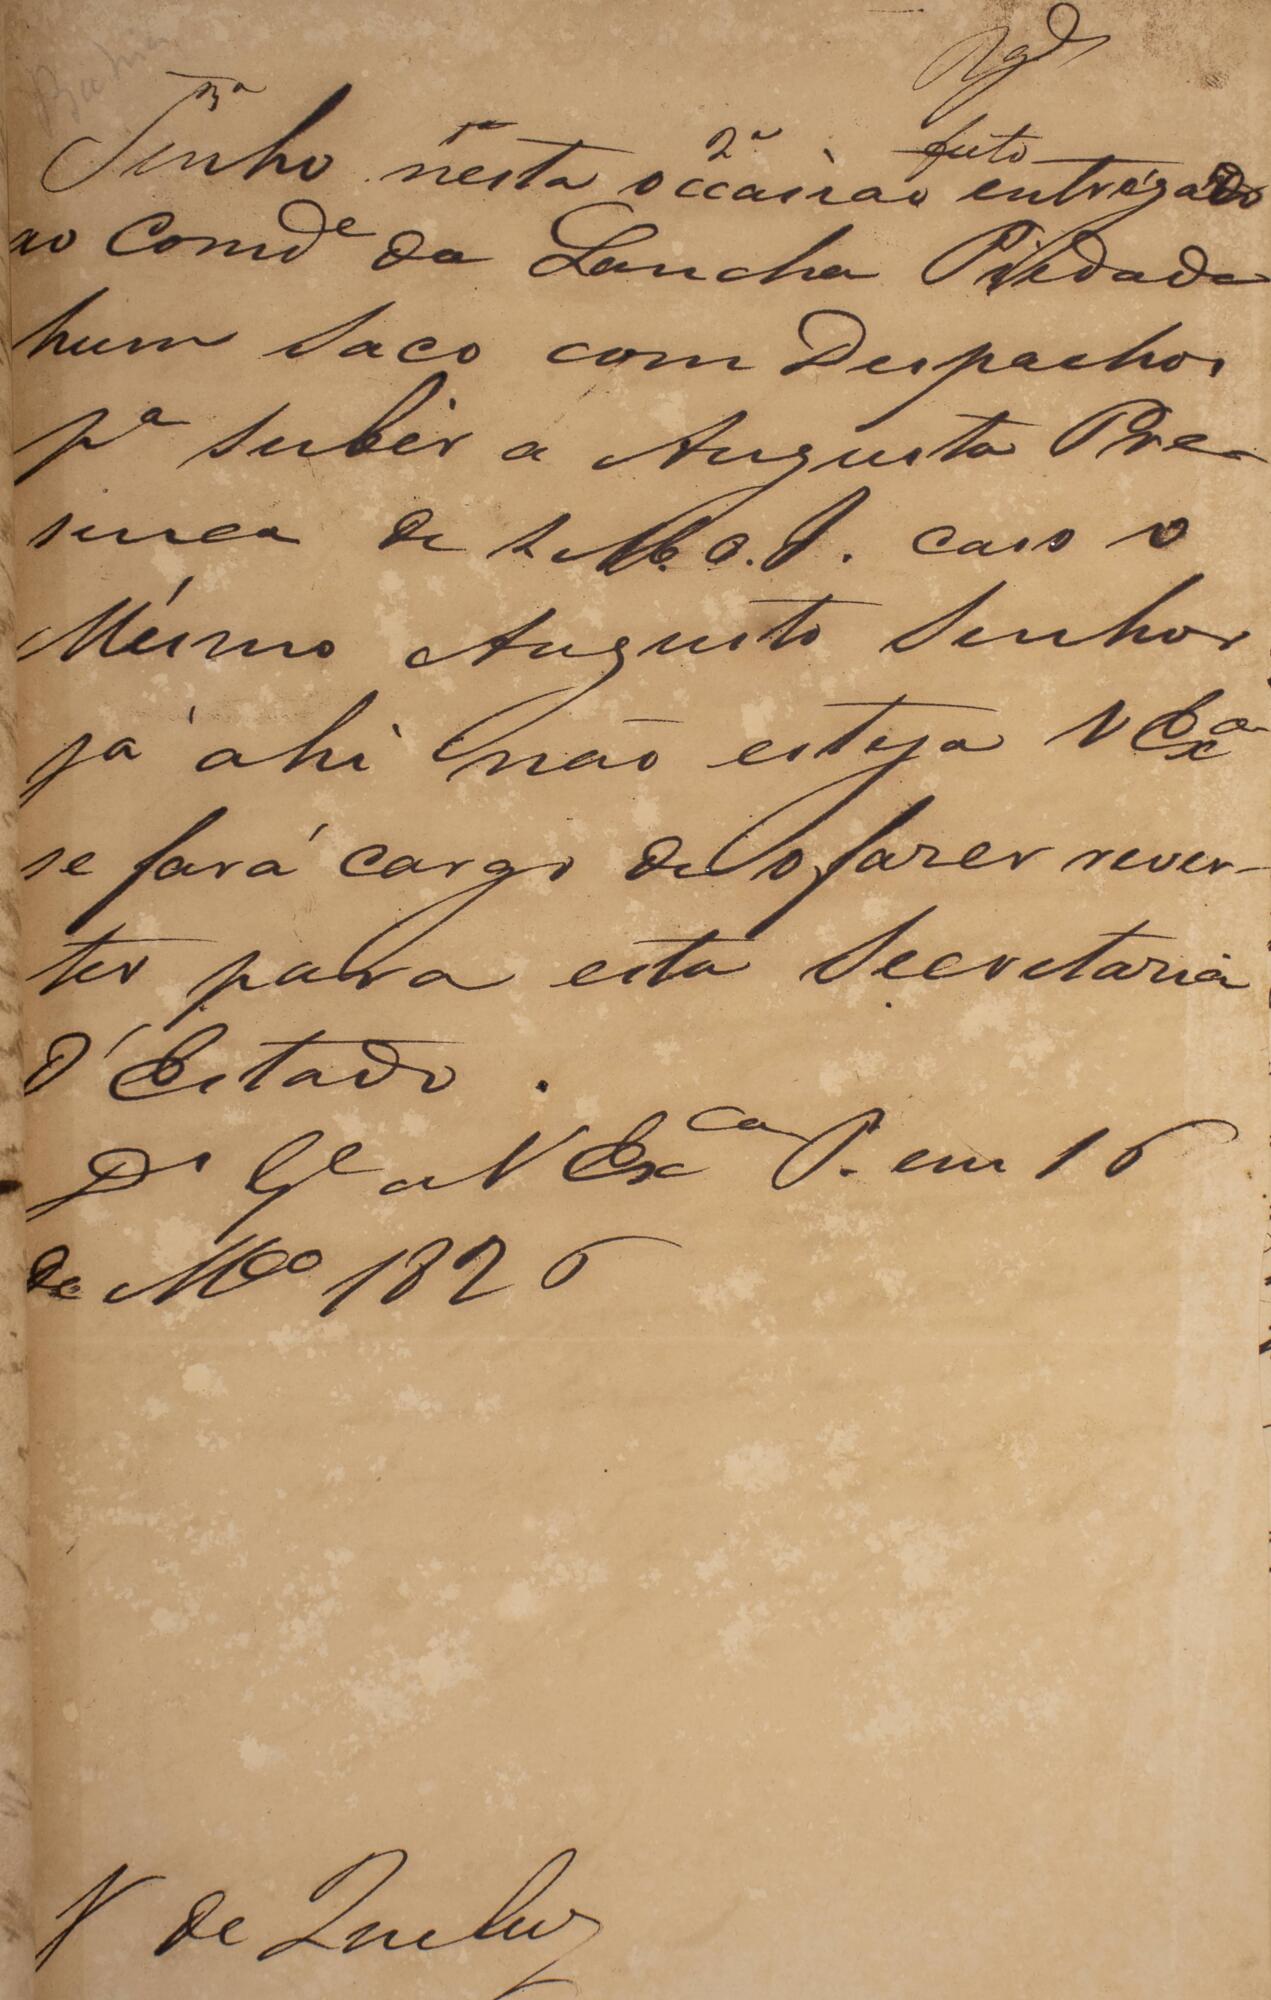 Bahia
Rgd
3ª 1ª 2ª feito
Tenho nesta occasião entregado
ao Comde da Lancha Piedade
hum saco com Despachos
pª subir a Augusta Pre-
sença de S. M. O. I. caso o
Mesmo Augusto Senhor
já ahi não esteja V Exª
se fará cargo de o fazer rever-
ter para esta Secretaria
d'Estado.
Ds Ge a V Exca P. em 16
de Mço 1826
V de Queluz